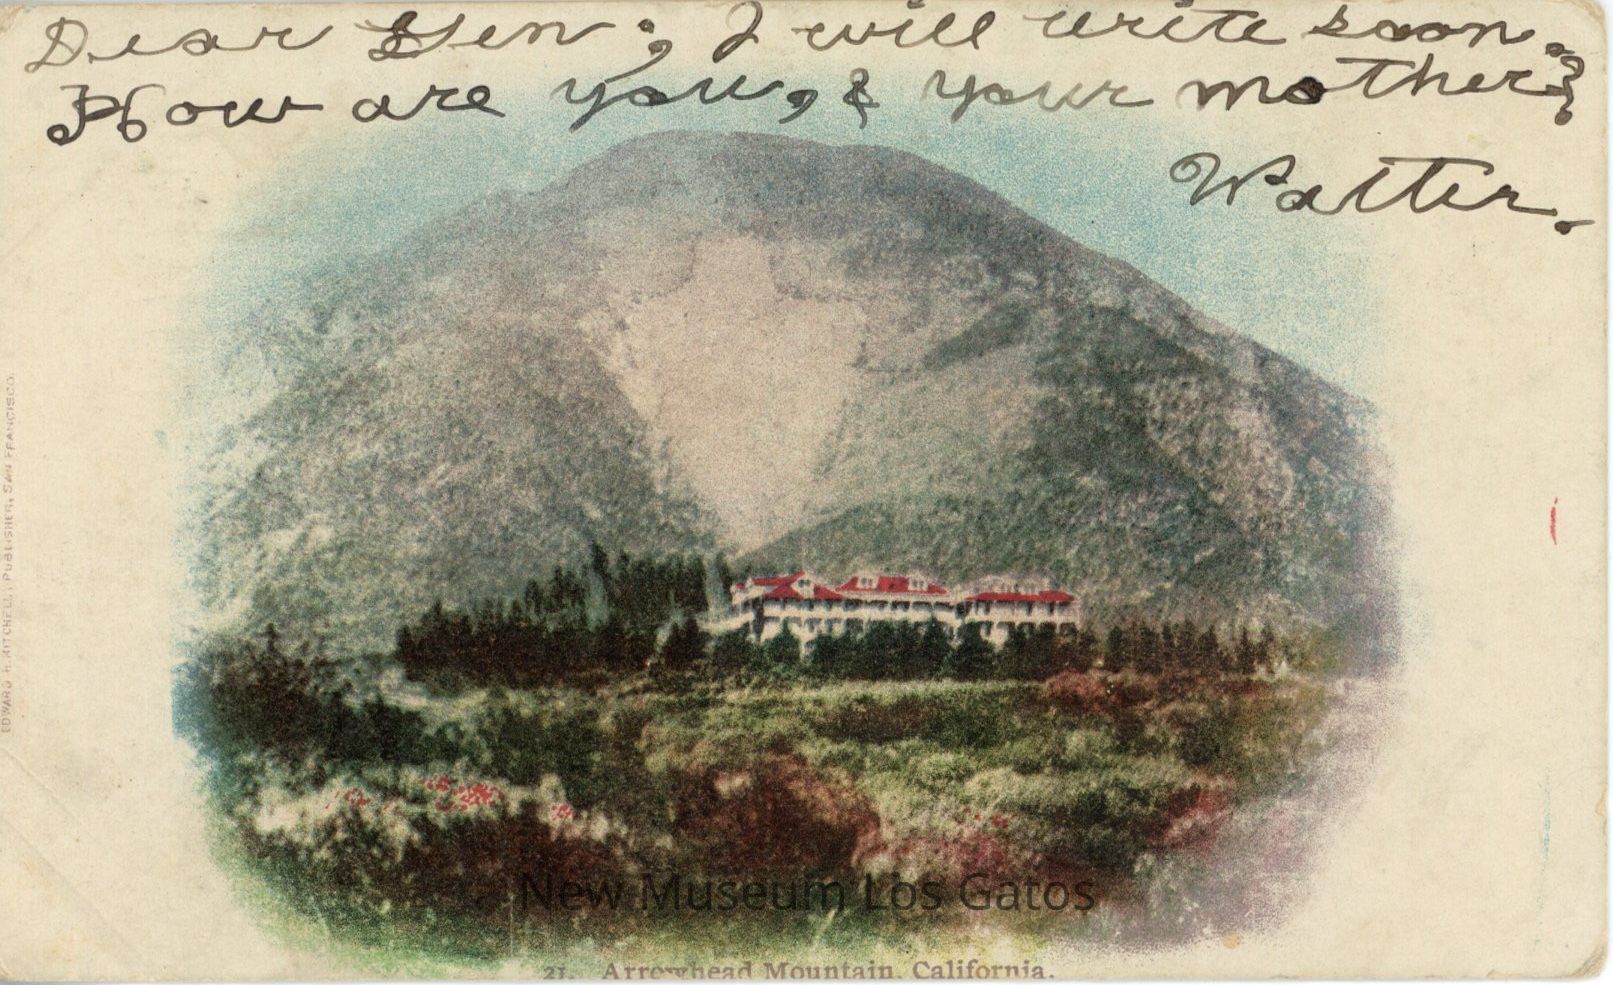 Dear Gen; I will write soon.
How are you, & your mother?
Walter.
EDWARD H. MITCHELL, PUBLISHER, SAN FRANCISCO.
New Museum Los Gatos
21. Arrowhead Mountain, California.